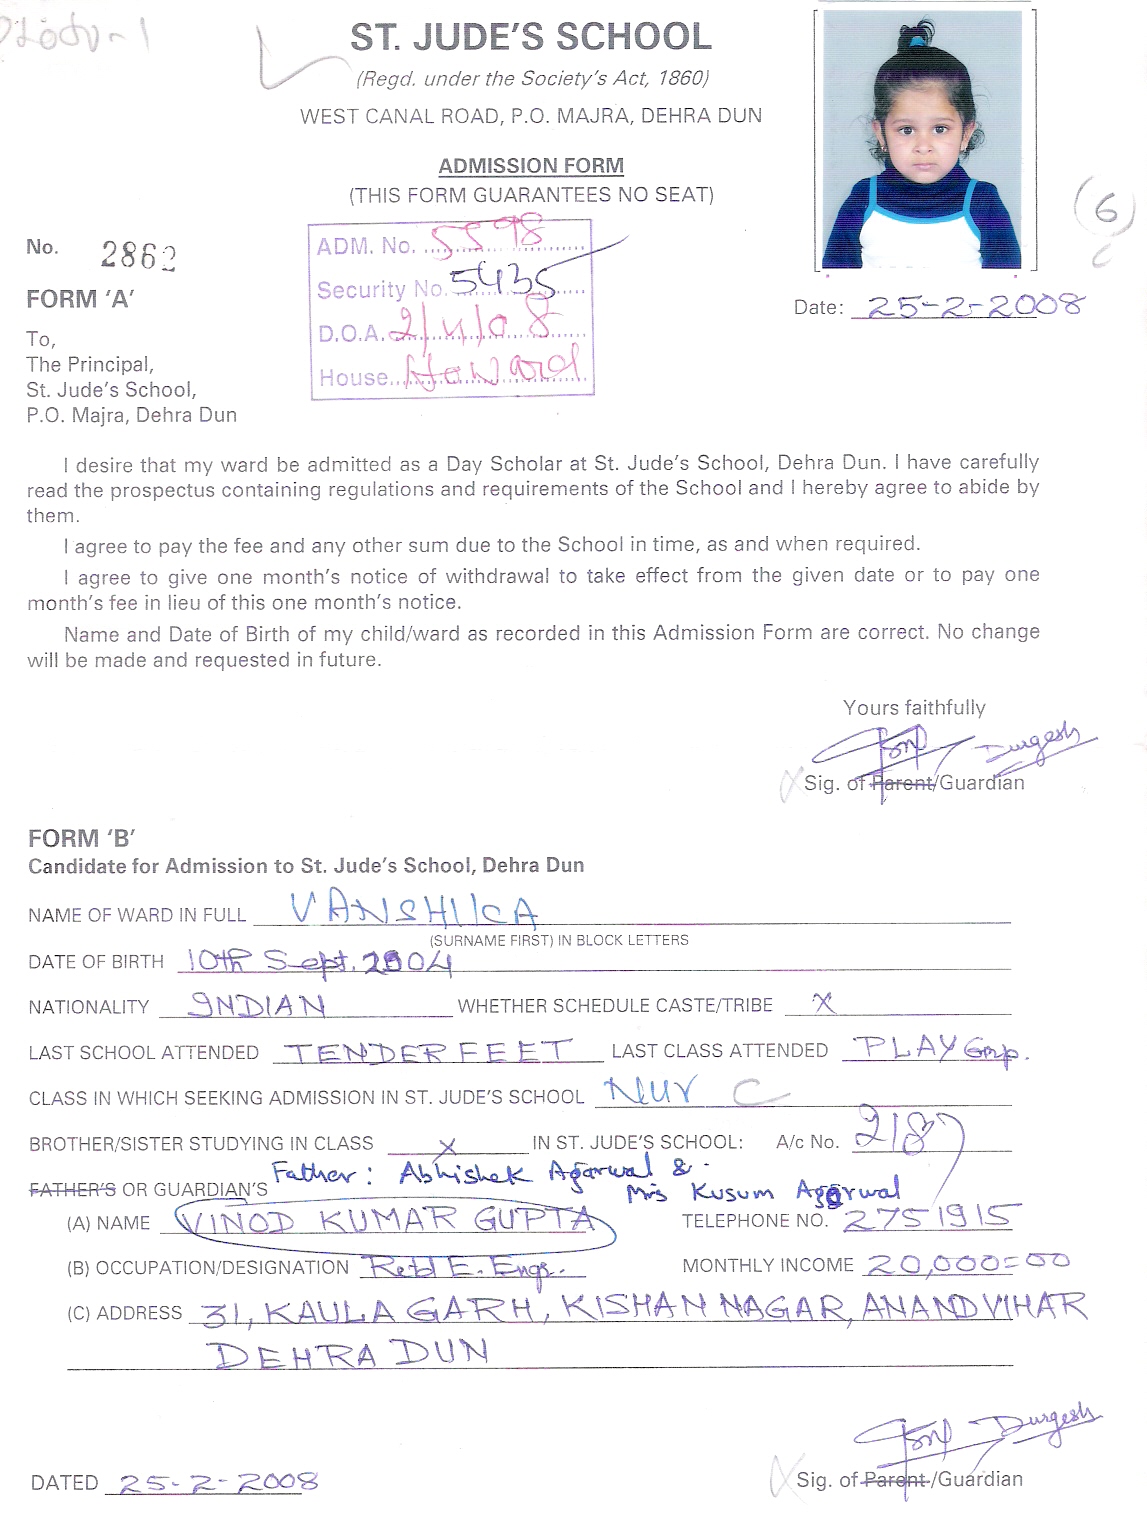 ST. JUDE'S SCHOOL
(Regd. under the Society's Act, 1860)
WEST CANAL ROAD, P.O. MAJRA, DEHRA DUN
ADMISSION FORM
(THIS FORM GUARANTEES NO SEAT)
(6)
No. 2862
ADM. No. 5598
Security No. 5435
D.O.A. 2/4/08
House Howard
Date: 25-2-2008
FORM 'A'
To,
The Principal,
St. Jude's School,
P.O. Majra, Dehra Dun
I desire that my ward be admitted as a Day Scholar at St. Jude's School, Dehra Dun. I have carefully
read the prospectus containing regulations and requirements of the School and I hereby agree to abide by
them.
I agree to pay the fee and any other sum due to the School in time, as and when required.
I agree to give one month's notice of withdrawal to take effect from the given date or to pay one
month's fee in lieu of this one month's notice.
Name and Date of Birth of my child/ward as recorded in this Admission Form are correct. No change
will be made and requested in future.
Yours faithfully
Durgesh
Sig. of Parent/Guardian
FORM 'B'
Candidate for Admission to St. Jude's School, Dehra Dun
NAME OF WARD IN FULL VANSHIKA
(SURNAME FIRST) IN BLOCK LETTERS
DATE OF BIRTH 10th Sept. 2004
NATIONALITY INDIAN WHETHER SCHEDULE CASTE/TRIBE X
LAST SCHOOL ATTENDED TENDER FEET LAST CLASS ATTENDED PLAY Grp.
CLASS IN WHICH SEEKING ADMISSION IN ST. JUDE'S SCHOOL NUr C
BROTHER/SISTER STUDYING IN CLASS X IN ST. JUDE'S SCHOOL: A/c No. 2187
Father: Abhishek Agarwal &
Mrs Kusum Agarwal
FATHER'S OR GUARDIAN'S
(A) NAME VINOD KUMAR GUPTA TELEPHONE NO. 2751915
(B) OCCUPATION/DESIGNATION Retd E. Engr. MONTHLY INCOME 20,000=00
(C) ADDRESS 31, KAULAGARH, KISHAN NAGAR, ANAND VIHAR
DEHRA DUN
Durgesh
DATED 25-2-2008 Sig. of Parent/Guardian